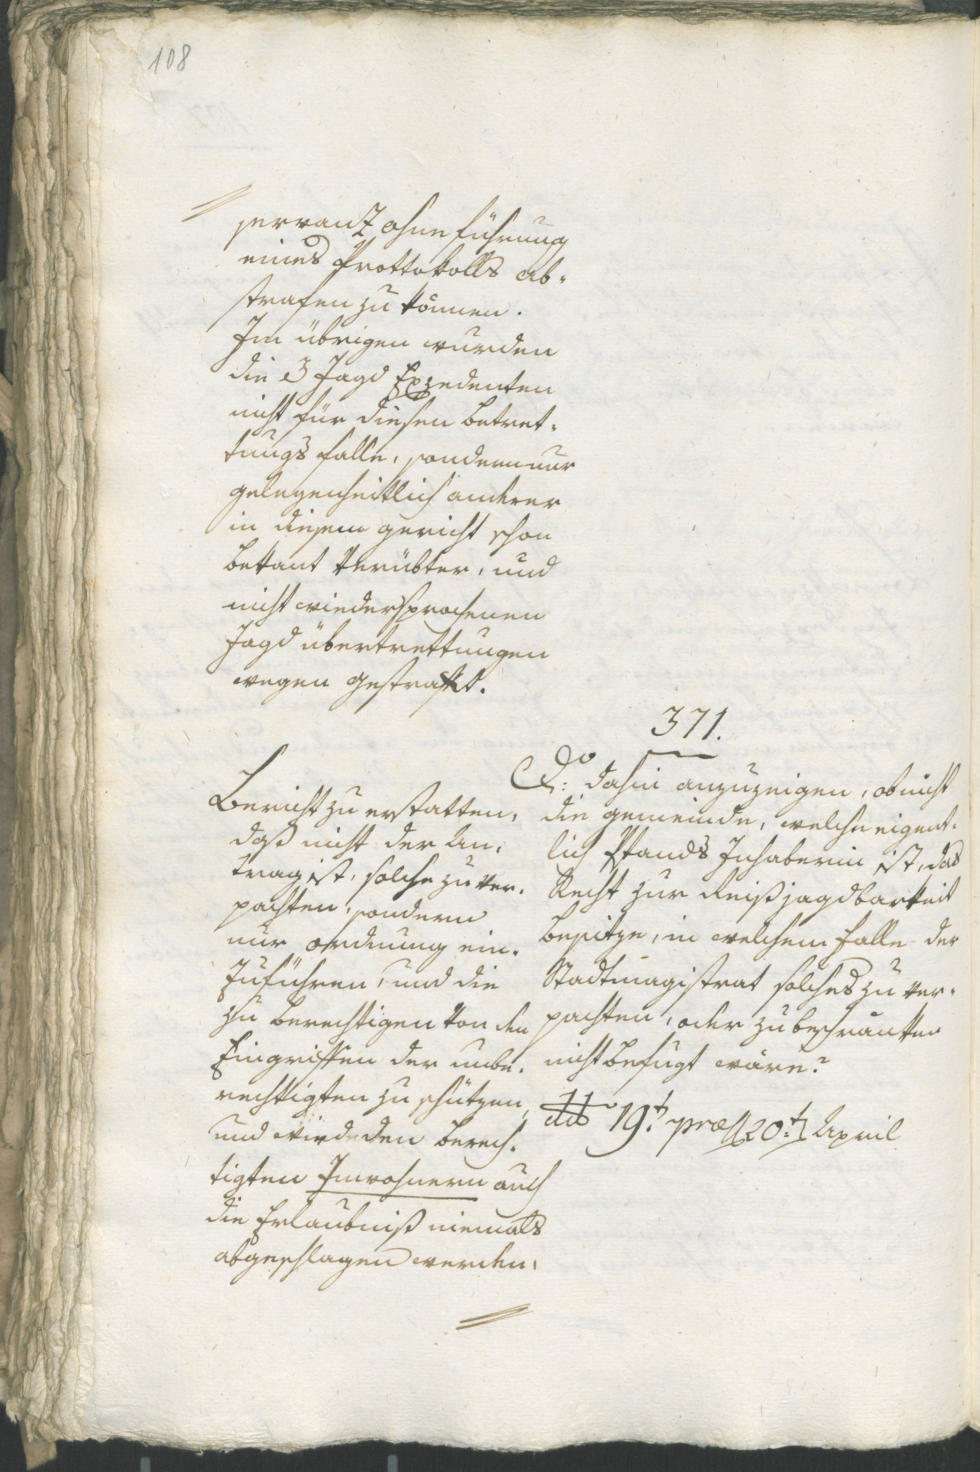 108
servanz ohne führung
eines Prottokolls ab-
strafen zu können.
Im übrigen wurden
die 3 Jagd Exzedenten
nicht für diesen betret-
tungs falle, sondern nur
gelegenheitlich anderer
in diesem gericht schon
bekant verübter, und
nicht wiedersprochenen
Jagd übertrettungen
wegen gestraft.
371.
Bericht zu erstatten,
daß nicht der An-
trag ist, solche zu ver-
pachten, sondern
nur ordnung ein-
zuführen, und die
zu berechtigen von den
Eingriffen der unbe-
rechtigten zu schützen,
und wird den berech-
tigten Innwohnern auch
die Erlaubniß niemals
abgeschlagen werden.
Do: dahin anzuzeigen, ob nicht
die gemeinde, welche eigent-
lich Stands Inhaberin ist, das
Recht zur Reißjagdbarkeit
besitze, in welchem falle der
Stadtmagistrat solches zu ver-
pachten, oder zu beschränken
nicht befugt wäre?
dto 19t: præs 20t: April